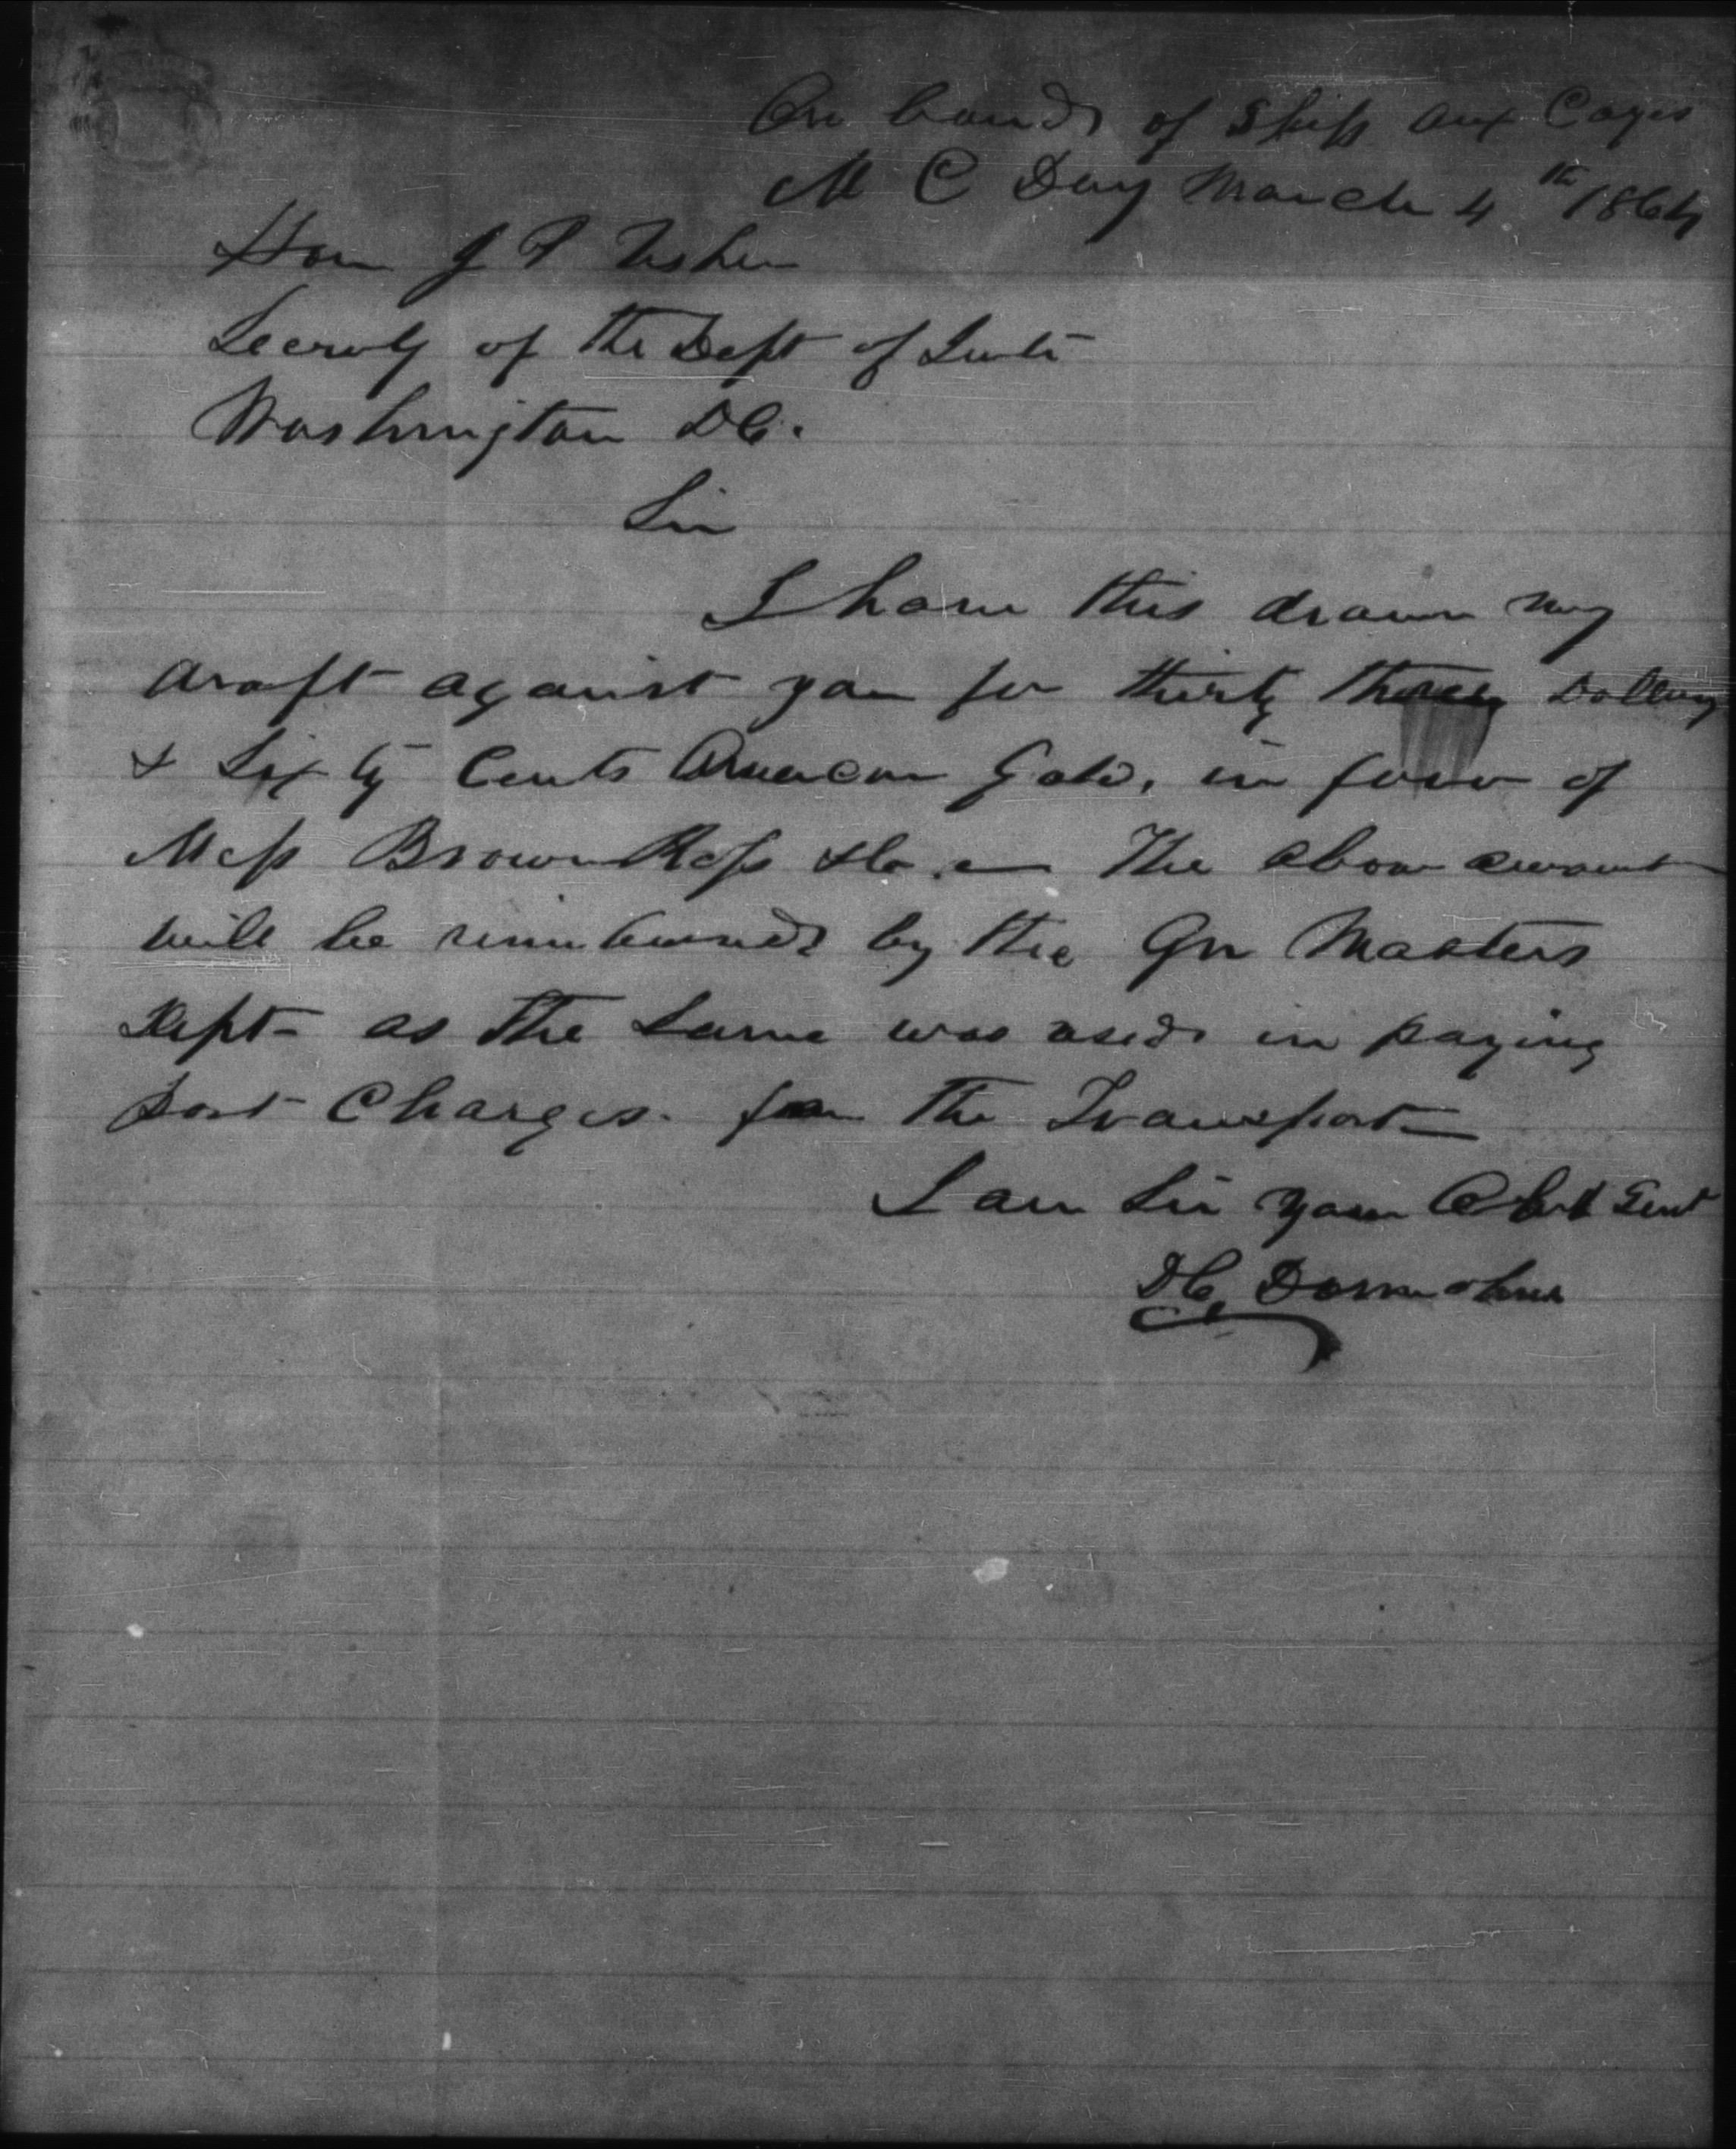 On board of Ship Aux Cayes
M C Day March 4th 1864
Hon J P Usher
Secrety of the Dept of Intr
Washington DC.
Sir
I have this drawn my
draft against you for thirty three Dollars
& Sixty Cents American Gold, in favor of
Mess Brown Ross & Co. The above amount
will be reimbursed by the Qr Masters
Dept - as the same was used in paying
Port Charges for the Transport
I am Sir your Obt Sevt
DC Donnohue